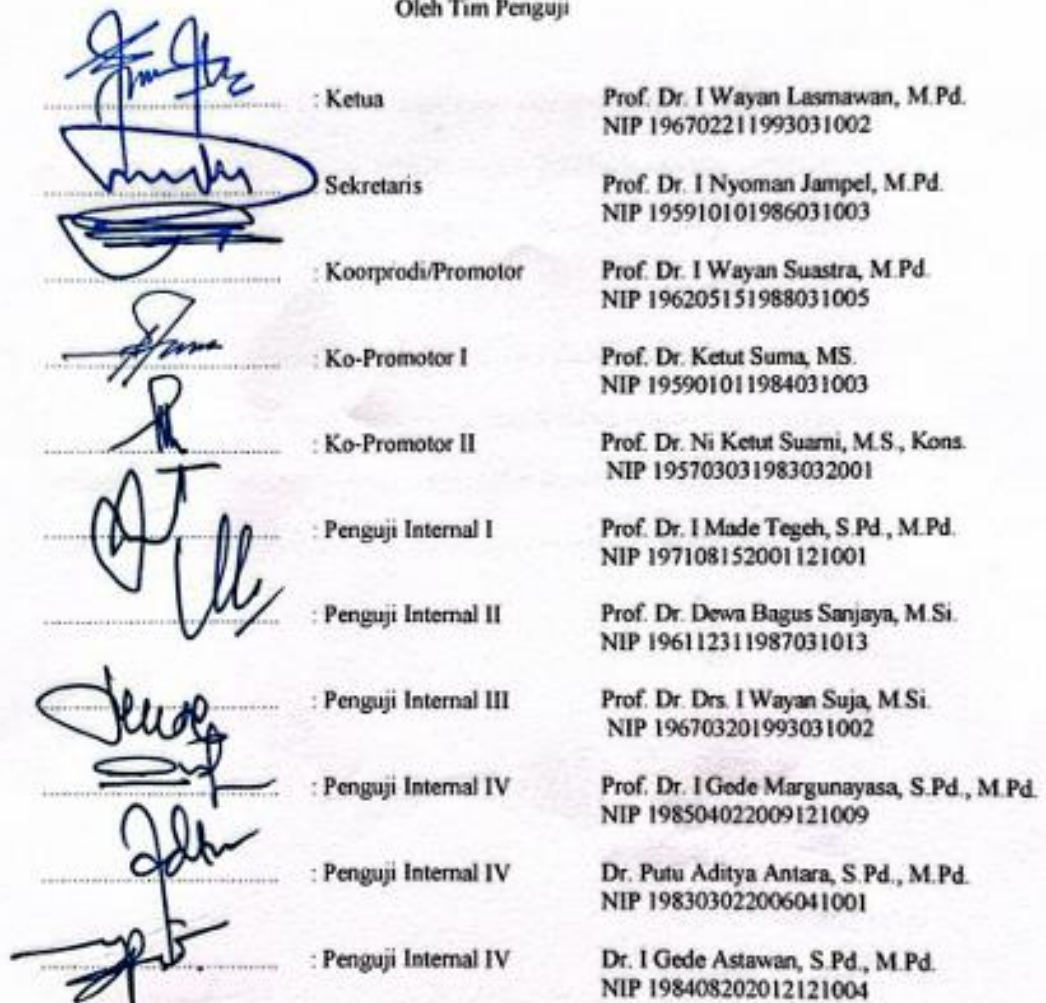 Oleh Tim Penguji
: Ketua Prof. Dr. I Wayan Lasmawan, M.Pd.
NIP 196702211993031002
: Sekretaris Prof. Dr. I Nyoman Jampel, M.Pd.
NIP 195910101986031003
: Koorprodi/Promotor Prof. Dr. I Wayan Suastra, M.Pd.
NIP 196205151988031005
: Ko-Promotor I Prof. Dr. Ketut Suma, MS.
NIP 195901011984031003
: Ko-Promotor II Prof. Dr. Ni Ketut Suarni, M.S., Kons.
NIP 195703031983032001
: Penguji Internal I Prof. Dr. I Made Tegeh, S.Pd., M.Pd.
NIP 197108152001121001
: Penguji Internal II Prof. Dr. Dewa Bagus Sanjaya, M.Si.
NIP 196112311987031013
: Penguji Internal III Prof. Dr. Drs. I Wayan Suja, M.Si.
NIP 196703201993031002
: Penguji Internal IV Prof. Dr. I Gede Margunayasa, S.Pd., M.Pd.
NIP 198504022009121009
: Penguji Internal IV Dr. Putu Aditya Antara, S.Pd., M.Pd.
NIP 198303022006041001
: Penguji Internal IV Dr. I Gede Astawan, S.Pd., M.Pd.
NIP 198408202012121004